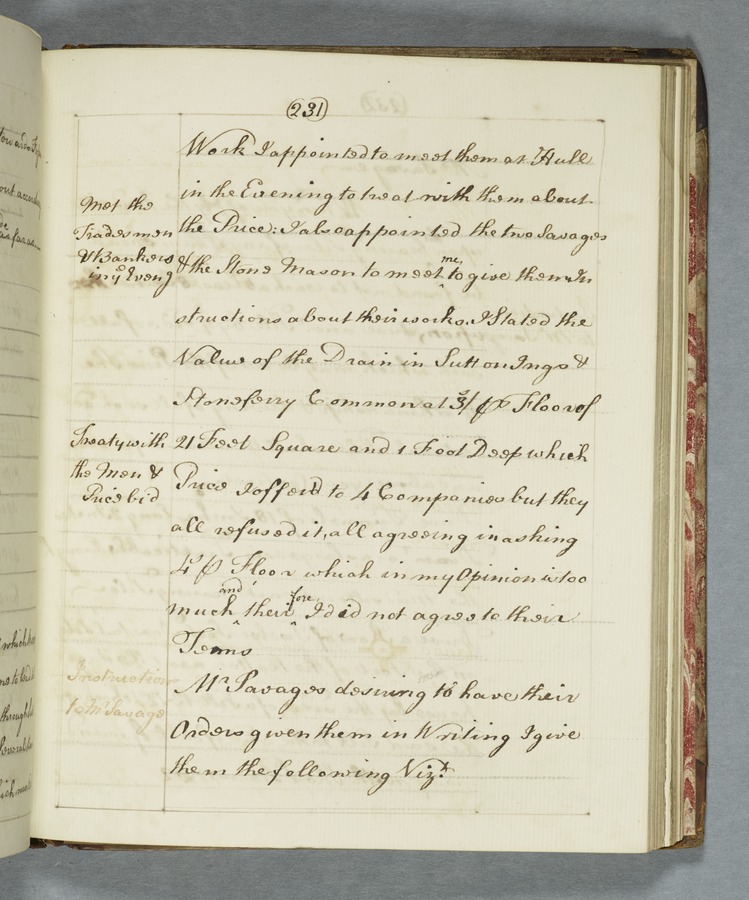 (231)
Work I appointed to meet them at Hull
in the Evening to treat with them about
Met the
Tradesmen
& Bankers
in yᵉ Eveng
the Price: I also appointed the two Savages
& the Stone Mason to meet me, to give them In
structions about their works. I Stated the
Value of the Drain in Sutton Ings &
Stoneferry Common at 3ˢ/ ⅌ Floor of
Treaty with
the Men &
Price bid
21 Feet Square and 1 Foot Deep which
Price I offer'd to 4 Companies but they
all refused it, all agreeing in asking
4ˢ ⅌ Floor which in my Opinion is too
much and therefore, I did not agree to their
Terms
Instruction
to Mʳ Savage
Mʳ Savages desiring to have their
Orders given them in Writing I give
them the following Vizᵗ